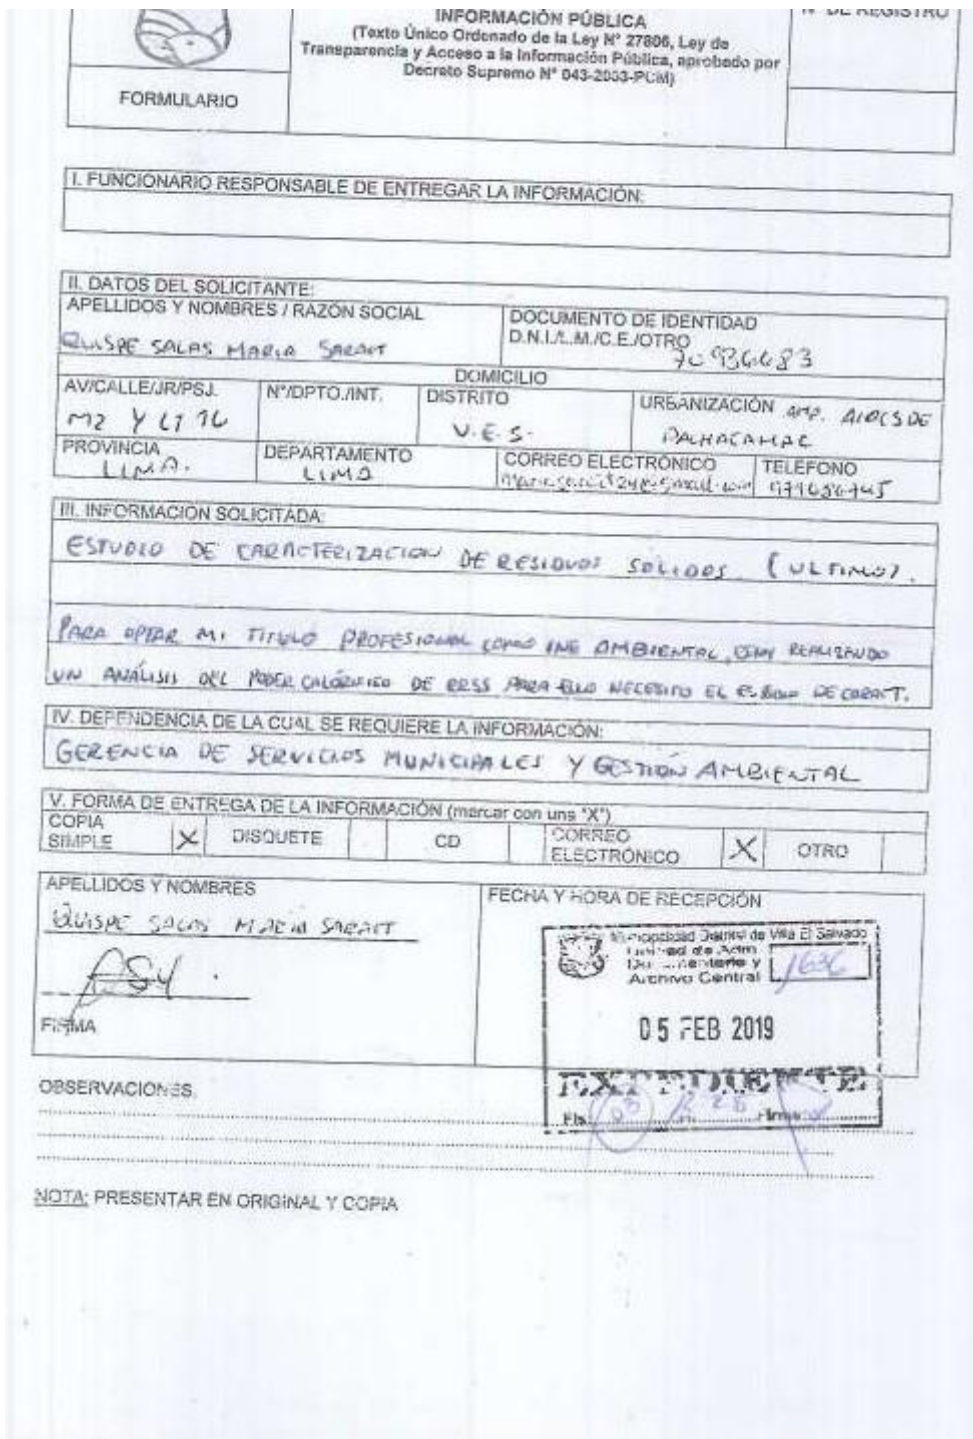 INFORMACIÓN PÚBLICA
(Texto Único Ordenado de la Ley N° 27806, Ley de
Transparencia y Acceso a la Información Pública, aprobado por
Decreto Supremo N° 043-2003-PCM)
N° DE REGISTRO
FORMULARIO
I. FUNCIONARIO RESPONSABLE DE ENTREGAR LA INFORMACIÓN:
II. DATOS DEL SOLICITANTE:
APELLIDOS Y NOMBRES / RAZÓN SOCIAL
DOCUMENTO DE IDENTIDAD
D.N.I./L.M./C.E./OTRO
QUISPE SALAS MARIA SARAIT
DOMICILIO
AV/CALLE/JR/PSJ. N°/DPTO./INT. DISTRITO URBANIZACIÓN AMP.
MZ Y LT 16 V.E.S. PACHACAMAC
PROVINCIA DEPARTAMENTO CORREO ELECTRÓNICO TELÉFONO
LIMA. LIMA
III. INFORMACIÓN SOLICITADA:
ESTUDIO DE CARACTERIZACION DE RESIDUOS SOLIDOS (ULTIMO).
PARA OPTAR MI TITULO PROFESIONAL COMO ING AMBIENTAL, ESTOY REALIZANDO
UN ANÁLISIS DEL PODER CALORIFICO DE RRSS PARA ELLO NECESITO EL ESTUDIO DE CARACT.
IV. DEPENDENCIA DE LA CUAL SE REQUIERE LA INFORMACIÓN:
GERENCIA DE SERVICIOS MUNICIPALES Y GESTIÓN AMBIENTAL
V. FORMA DE ENTREGA DE LA INFORMACIÓN (marcar con una "X")
COPIA SIMPLE X DISQUETE CD CORREO ELECTRÓNICO X OTRO
APELLIDOS Y NOMBRES
FECHA Y HORA DE RECEPCIÓN
QUISPE SALAS MARIA SARAIT
Municipalidad Distrital de Villa El Salvador
Unidad de Adm.
Documentaria y
Archivo Central
1636
05 FEB 2019
EXPEDIENTE
FIRMA
OBSERVACIONES:
NOTA: PRESENTAR EN ORIGINAL Y COPIA